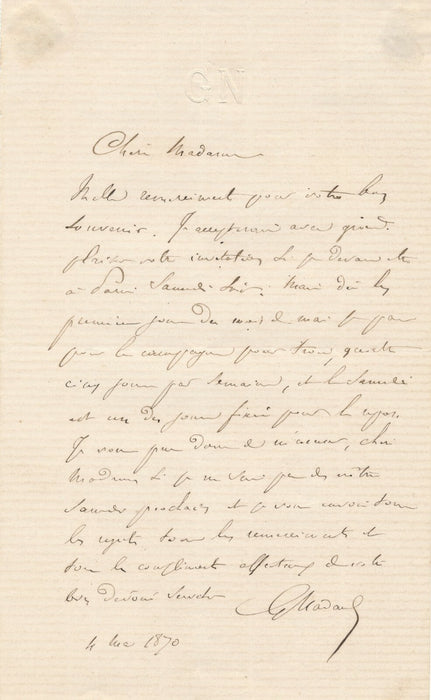 GN
Chère Madame
Mille remerciements pour votre bon
souvenir. J'accepterais avec grand
plaisir votre invitation si je devais être
à Paris Samedi soir. Mais dès les
premiers jours du mois de mai je pars
pour la campagne pour trois, quatre
cinq jours par semaine, et le Samedi
est un des jours fixés pour le
Je vous prie donc de m'excuser, chère
Madame si je ne suis pas des vôtres
Samedi prochain et je vous envoie tous
les regrets tous les remerciements et
tous les compliments affectueux de votre
bien dévoué Serviteur
4 Mai 1870